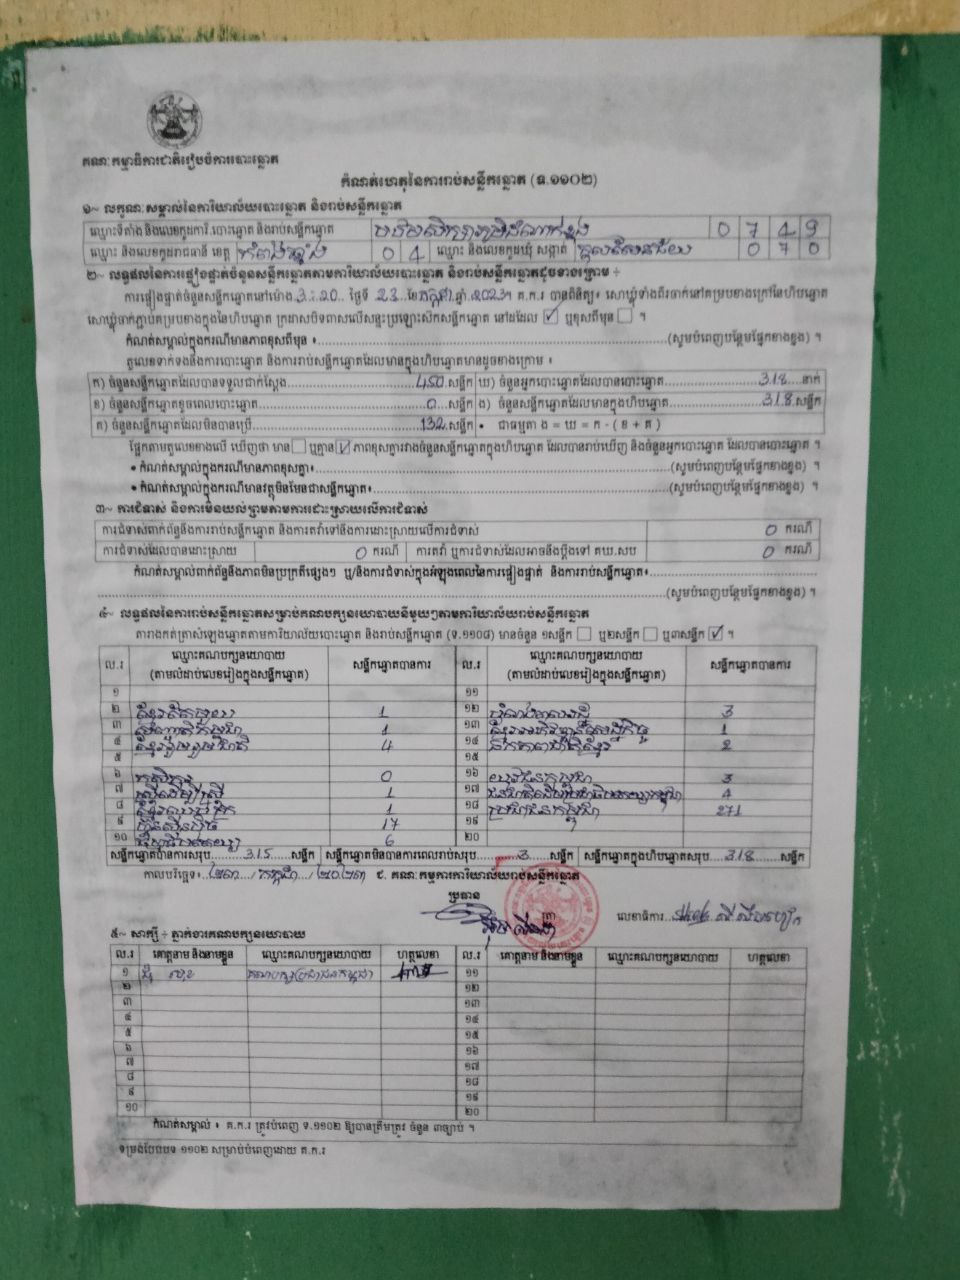 គណៈកម្មាធិការជាតិរៀបចំការបោះឆ្នោត
កំណត់ហេតុនៃការរាប់សន្លឹកឆ្នោត (ទ.១១០២)
១~ លក្ខណៈសម្គាល់នៃការិយាល័យបោះឆ្នោត និងរាប់សន្លឹកឆ្នោត
ឈ្មោះទីតាំង និងលេខកូដការិ.បោះឆ្នោត និងរាប់សន្លឹកឆ្នោត 0 7 4 9
ឈ្មោះ និងលេខកូដរាជធានី ខេត្ត កំពង់ឆ្នាំង 0 4 ឈ្មោះ និងលេខកូដឃុំ សង្កាត់ 0 7 0
២~ លទ្ធផលនៃការផ្ទៀងផ្ទាត់ចំនួនសន្លឹកឆ្នោតតាមការិយាល័យបោះឆ្នោត និងរាប់សន្លឹកឆ្នោតដូចខាងក្រោម ÷
ការផ្ទៀងផ្ទាត់ចំនួនសន្លឹកឆ្នោតនៅម៉ោង 3:20 ថ្ងៃទី 23 ខែ កក្កដា ឆ្នាំ 2023។ គ.ក.រ បានពិនិត្យ៖ សោឃ្លុំទាំងពីរចាក់នៅគម្របខាងក្រៅនៃហិបឆ្នោត
សោឃ្លុំចាក់ភ្ជាប់គម្របខាងក្នុងនៃហិបឆ្នោត ក្រដាសបិទពាសលើសន្ទះប្រឡោះសឹកសន្លឹកឆ្នោត នៅដដែល ☑ ឬខុសពីមុន ☐ ។
កំណត់សម្គាល់ក្នុងករណីមានភាពខុសពីមុន ៖ (សូមបំពេញបន្ថែមផ្នែកខាងខ្នង) ។
តួលេខទាក់ទងនឹងការបោះឆ្នោត និងការរាប់សន្លឹកឆ្នោតដែលមានក្នុងហិបឆ្នោតមានដូចខាងក្រោម ៖
ក) ចំនួនសន្លឹកឆ្នោតដែលបានទទួលជាក់ស្តែង 450 សន្លឹក ឃ) ចំនួនអ្នកបោះឆ្នោតដែលបានបោះឆ្នោត 318 នាក់
ខ) ចំនួនសន្លឹកឆ្នោតខូចពេលបោះឆ្នោត 0 សន្លឹក ង) ចំនួនសន្លឹកឆ្នោតដែលមានក្នុងហិបឆ្នោត 318 សន្លឹក
គ) ចំនួនសន្លឹកឆ្នោតដែលមិនបានប្រើ 132 សន្លឹក • ជាធម្មតា ង = ឃ = ក - ( ខ + គ )
ផ្អែកតាមតួលេខខាងលើ ឃើញថា មាន ☐ ឬគ្មាន ☑ ភាពខុសគ្នារវាងចំនួនសន្លឹកឆ្នោតក្នុងហិបឆ្នោត ដែលបានរាប់ឃើញ និងចំនួនអ្នកបោះឆ្នោត ដែលបានបោះឆ្នោត ។
• កំណត់សម្គាល់ក្នុងករណីមានភាពខុសគ្នា៖ (សូមបំពេញបន្ថែមផ្នែកខាងខ្នង) ។
• កំណត់សម្គាល់ក្នុងករណីមានវត្ថុមិនមែនជាសន្លឹកឆ្នោត៖ (សូមបំពេញបន្ថែមផ្នែកខាងខ្នង) ។
៣~ ការជំទាស់ និងការមិនយល់ព្រមតាមការដោះស្រាយលើការជំទាស់
ការជំទាស់ពាក់ព័ន្ធនឹងការរាប់សន្លឹកឆ្នោត និងការតវ៉ាទៅនឹងការដោះស្រាយលើការជំទាស់ 0 ករណី
ការជំទាស់ដែលបានដោះស្រាយ 0 ករណី ការតវ៉ា ឬការជំទាស់ដែលអាចនឹងប្តឹងទៅ គឃ.សប 0 ករណី
កំណត់សម្គាល់ពាក់ព័ន្ធនឹងភាពមិនប្រក្រតីផ្សេងៗ ឬ/និងការជំទាស់ក្នុងអំឡុងពេលនៃការផ្ទៀងផ្ទាត់ និងការរាប់សន្លឹកឆ្នោត៖
(សូមបំពេញបន្ថែមផ្នែកខាងខ្នង) ។
៤~ លទ្ធផលនៃការរាប់សន្លឹកឆ្នោតសម្រាប់គណបក្សនយោបាយនីមួយៗតាមការិយាល័យរាប់សន្លឹកឆ្នោត
តារាងកត់ត្រាសំឡេងឆ្នោតតាមការិយាល័យបោះឆ្នោត និងរាប់សន្លឹកឆ្នោត (ទ.១១០៨) មានចំនួន ១សន្លឹក ☐ ឬ២សន្លឹក ☐ ឬ៣សន្លឹក ☑ ។
ល.រ ឈ្មោះគណបក្សនយោបាយ (តាមលំដាប់លេខរៀងក្នុងសន្លឹកឆ្នោត) សន្លឹកឆ្នោតបានការ ល.រ ឈ្មោះគណបក្សនយោបាយ (តាមលំដាប់លេខរៀងក្នុងសន្លឹកឆ្នោត) សន្លឹកឆ្នោតបានការ
១ ១១
២ 1 ១២ 3
៣ 1 ១៣ 1
៤ 4 ១៤ ឯកភាពជាតិខ្មែរ 2
៥ ១៥
៦ 0 ១៦ យុវជនកម្ពុជា 3
៧ ស្ត្រីដើម្បីស្ត្រី 1 ១៧ 4
៨ 1 ១៨ ប្រជាជនកម្ពុជា 271
៩ ហ្វ៊ុនស៊ិនប៉ិច 17 ១៩
១០ 6 ២០
សន្លឹកឆ្នោតបានការសរុប 315 សន្លឹក សន្លឹកឆ្នោតមិនបានការពេលរាប់សរុប 3 សន្លឹក សន្លឹកឆ្នោតក្នុងហិបឆ្នោតសរុប 318 សន្លឹក
កាលបរិច្ឆេទ៖ ២៣/ កក្កដា / ២០២៣ ៩. គណៈកម្មការការិយាល័យរាប់សន្លឹកឆ្នោត
ប្រធាន
លេខាធិការ
៥~ សាក្សី ÷ ភ្នាក់ងារគណបក្សនយោបាយ
ល.រ គោត្តនាម និងនាមខ្លួន ឈ្មោះគណបក្សនយោបាយ ហត្ថលេខា ល.រ គោត្តនាម និងនាមខ្លួន ឈ្មោះគណបក្សនយោបាយ ហត្ថលេខា
១ គណបក្សប្រជាជនកម្ពុជា ១១
២ ១២
៣ ១៣
៤ ១៤
៥ ១៥
៦ ១៦
៧ ១៧
៨ ១៨
៩ ១៩
១០ ២០
កំណត់សម្គាល់ ៖ គ.ក.រ ត្រូវបំពេញ ទ.១១០២ ឱ្យបានត្រឹមត្រូវ ចំនួន ៣ច្បាប់ ។
ទម្រង់បែបបទ ១១០២ សម្រាប់បំពេញដោយ គ.ក.រ